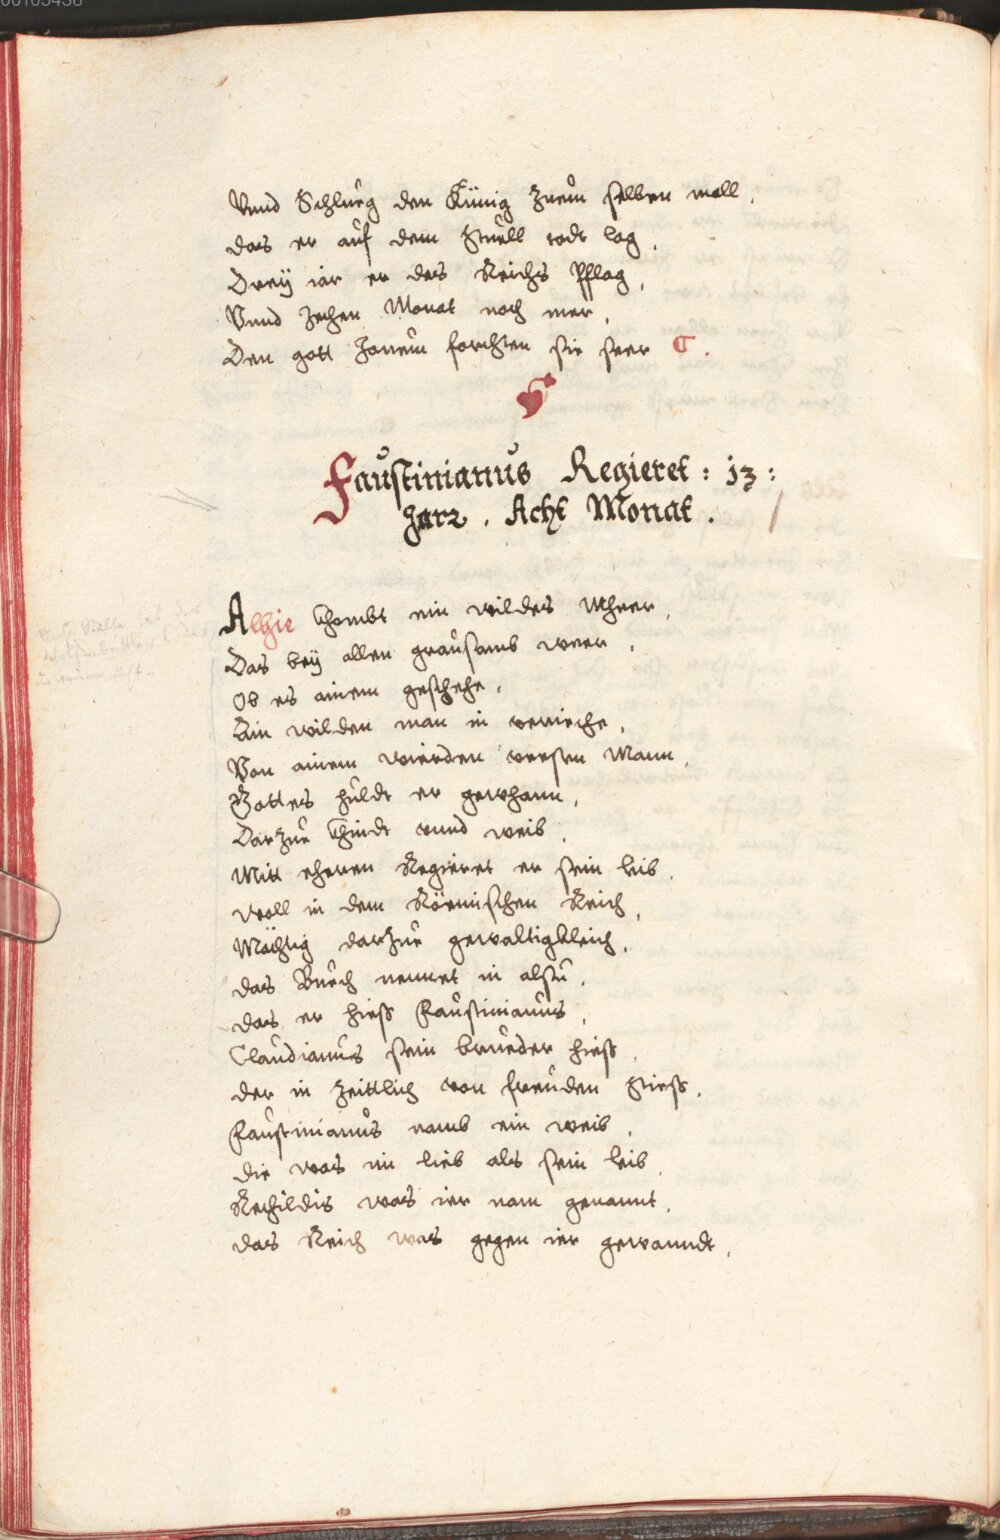 Vnnd Schlueg den Künig Zuem selben mall,
das er auf dem Stuell todt lag,
Drey iar er des Reichs Pflag,
Vnnd Zechen Monat noch mer,
Den gott Jouem forchten sie seer
Faustinianus Regieret : 13 :
Jarz . Acht Monat .
Alhie Chombt ein wildes Mheer,
Das bey allen grausamb weer,
Ob es ainem geschehe,
Ain wilden man in
Von ainem wierden Mann,
Gottes huldt er gewhann,
Darzue Chindt vnnd weib,
Mitt eheren Regieret er sein leib,
woll in dem Römischen Reich,
Mächtig darzue gewaltigkleich,
das Buech nennet in alsu,
das er hiess Faustinianus,
Claudianus sein brueder hiess,
der in Zeittlich von freuden Stiess,
Faustinianus namb ein weib,
die was im lieb als sein leib,
Mechildis was ier nam genannt,
das Reich was gegen ier gewanndt,